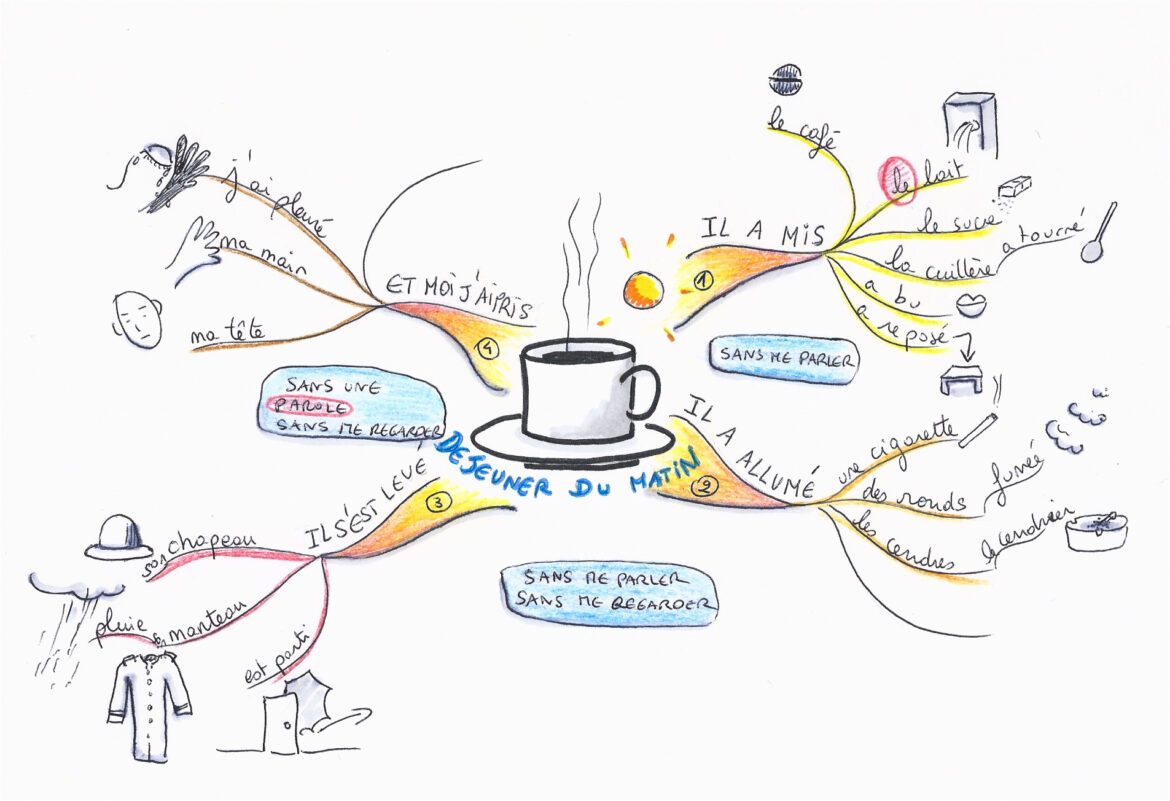 DEJEUNER DU MATIN
1
IL A MIS
le café
le lait
le sucre
la cuillère
a tourné
a bu
a reposé
SANS ME PARLER
2
IL A ALLUMÉ
une cigarette
des ronds
fumée
les cendres
le cendrier
SANS ME PARLER
SANS ME REGARDER
3
IL S'EST LEVÉ
son chapeau
son manteau
pluie
est parti
SANS UNE
PAROLE
SANS ME REGARDER
4
ET MOI J'AI PRIS
ma tête
ma main
j'ai pleuré